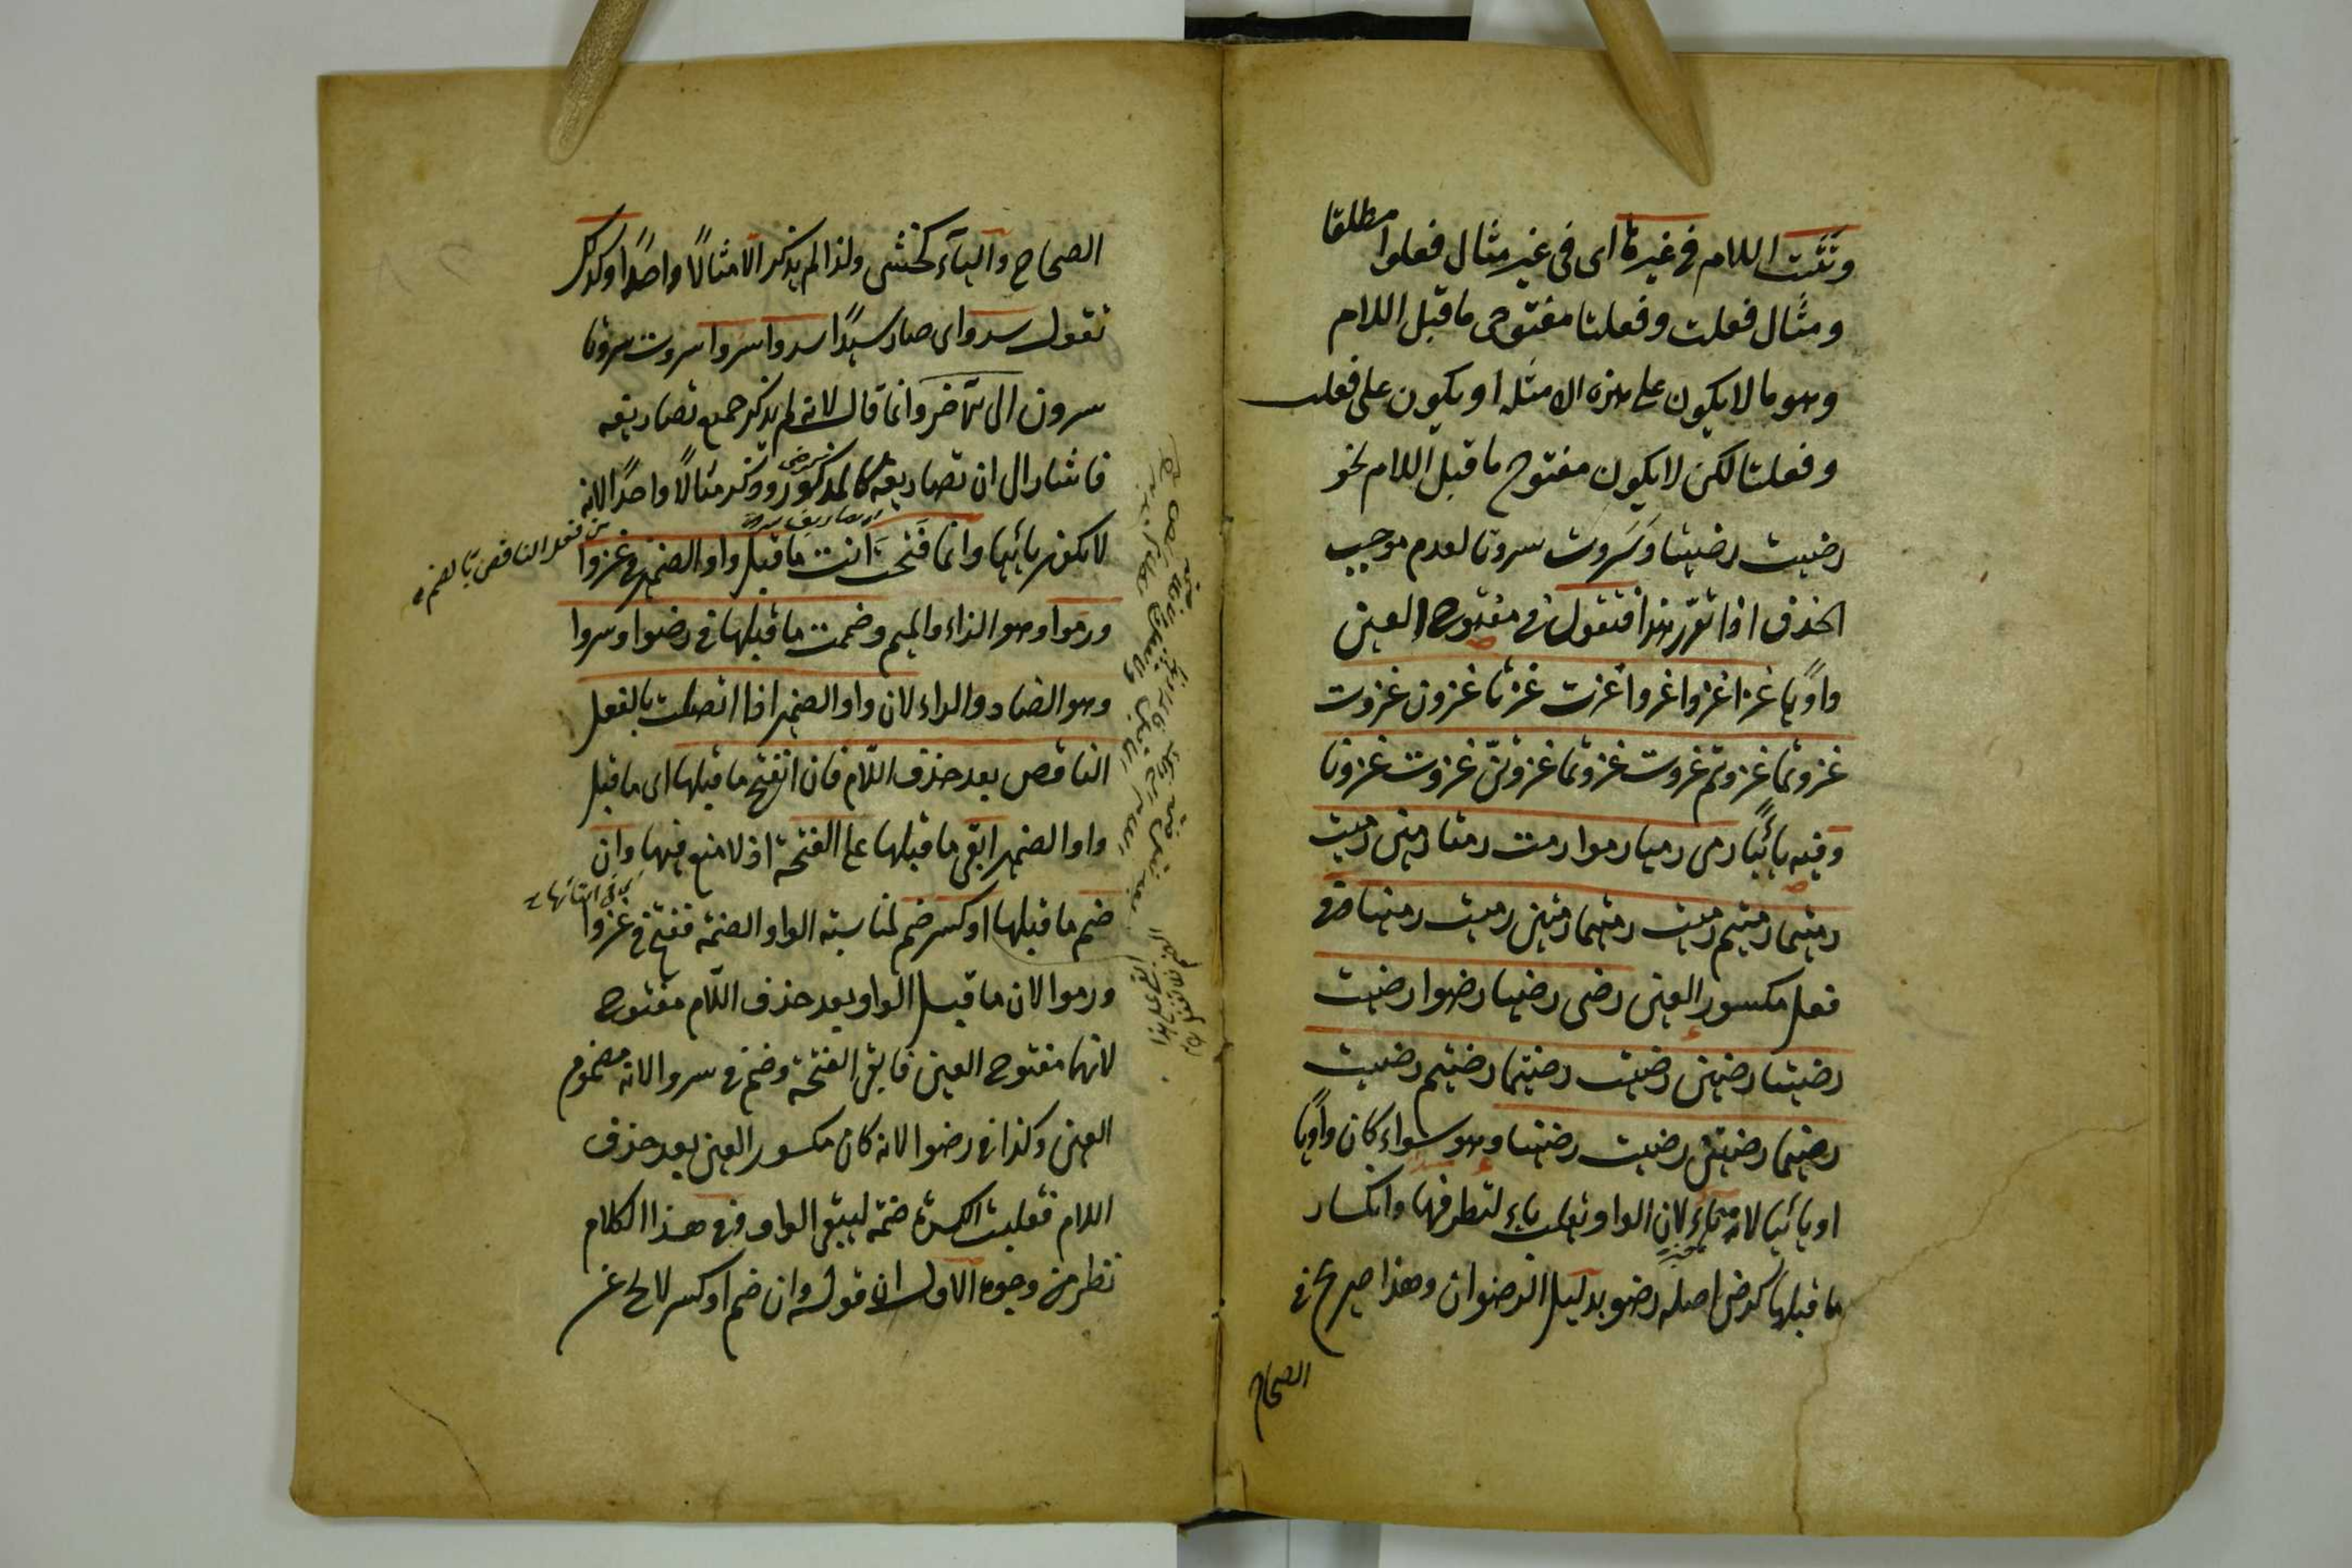 وتثبت اللام فى غيرها اى فى غير مثال فعلوا مطلقا
ومثال فعلت وفعلتا مفتوحى ما قبل اللام
وهو ما لا يكون على هذه الامثلة او يكون على فعلت
وفعلتا لكن لا يكون مفتوح ما قبل اللام نحو
رضيت رضيتا وسروت سروتا لعدم موجب
الحذف اذا تقرر هذا فتقول فى مفتوح العين
واويا غزا غزوا غزوا غزت غزتا غزون غزوت
غزوتما غزوتم غزوت غزوتما غزوتن غزوت غزونا
وفيه يائيا رمى رميا رموا رمت رمتا رمين رميت
رميتما رميتم رميت رميتما رميتن رميت رمينا وفى
فعل مكسور العين رضى رضيا رضوا رضيت
رضيتا رضين رضيت رضيتما رضيتم رضيت
رضيتما رضيتن رضيت رضينا وهو سواء كان واويا
او يائيا لانه لان الواو تقلب ياء لتطرفها وانكسار
ما قبلها كرضى اصله رضو بدليل الرضوان وهذا صريح فى
الصحاح
الصحاح واليآء كخشى ولذا لم يذكر الا مثالا واحدا وكذلك
تقول سرو اى صار سيدا سروا سروا سروت سروتا
سرون الى آخره وانما قال لانه لم يذكر جميع تصاريفه
فاشار الى ان تصاريفه كالمذكور وذكر مثالا واحدا لانه
لا يكون يائيا وانما فتحت انت ما قبل واو الضمير فى غزوا
ورموا وهو الزاء والميم وضممت ما قبلها فى رضوا وسروا
وهو الضاد والراء لان واو الضمير اذا اتصلت بالفعل
الناقص بعد حذف اللام فان انفتح ما قبلها اى ما قبل
واو الضمير ابقى ما قبلها على الفتحة اذ لا منع فيها وان
ضم ما قبلها او كسر ضم لمناسبة الواو الضمة ففتح فى غزوا
ورموا لان ما قبل الواو بعد حذف اللام مفتوح
لانهما مفتوح العين فابقى الفتحة وضم فى سروا لانه مضموم
العين وكذا فى رضوا لانه كان مكسور العين بعد حذف
اللام فقلبت الكسرة ضمة ليبقى الواو وفى هذا الكلام
نظر من وجوه الاول ان قوله وان ضم او كسر لا يخ عن